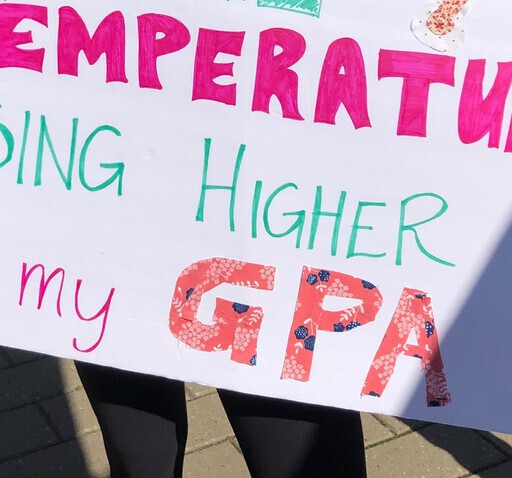 EMPERATU
OING HIGHER
my GPA